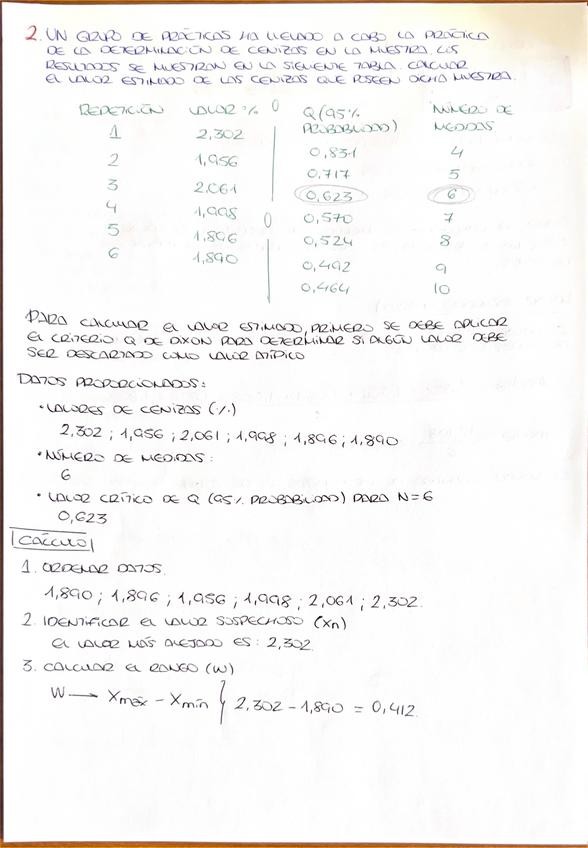 2. UN GRUPO DE PRÁCTICAS HA LLEVADO A CABO LA PRÁCTICA
DE LA DETERMINACIÓN DE CENIZAS EN LA MUESTRA. LOS
RESULTADOS SE MUESTRAN EN LA SIGUIENTE TABLA. CALCULAR
EL VALOR ESTIMADO DE LAS CENIZAS QUE POSEEN DICHA MUESTRA.
REPETICIÓN VALOR % Q (95% PROBABILIDAD) NÚMERO DE MEDIDAS
1 2,302 0,831 4
2 1,956 0,717 5
3 2.061 0,623 6
4 1,998 0,570 7
5 1,896 0,524 8
6 1,890 0,492 9
0,464 10
PARA CALCULAR EL VALOR ESTIMADO, PRIMERO SE DEBE APLICAR
EL CRITERIO Q DE DIXON PARA DETERMINAR SI ALGÚN VALOR DEBE
SER DESCARTADO COMO VALOR ATÍPICO
DATOS PROPORCIONADOS:
• VALORES DE CENIZAS (%)
2,302 ; 1,956 ; 2,061 ; 1,998 ; 1,896 ; 1,890
• NÚMERO DE MEDIDAS:
6
• VALOR CRÍTICO DE Q (95% PROBABILIDAD) PARA N=6
0,623
CÁLCULO
1. ORDENAR DATOS.
1,890 ; 1,896 ; 1,956 ; 1,998 ; 2,061 ; 2,302.
2. IDENTIFICAR EL VALOR SOSPECHOSO (Xn)
EL VALOR MÁS ALEJADO ES: 2,302.
3. CALCULAR EL RANGO (W)
W → Xmáx - Xmín } 2,302 - 1,890 = 0,412.